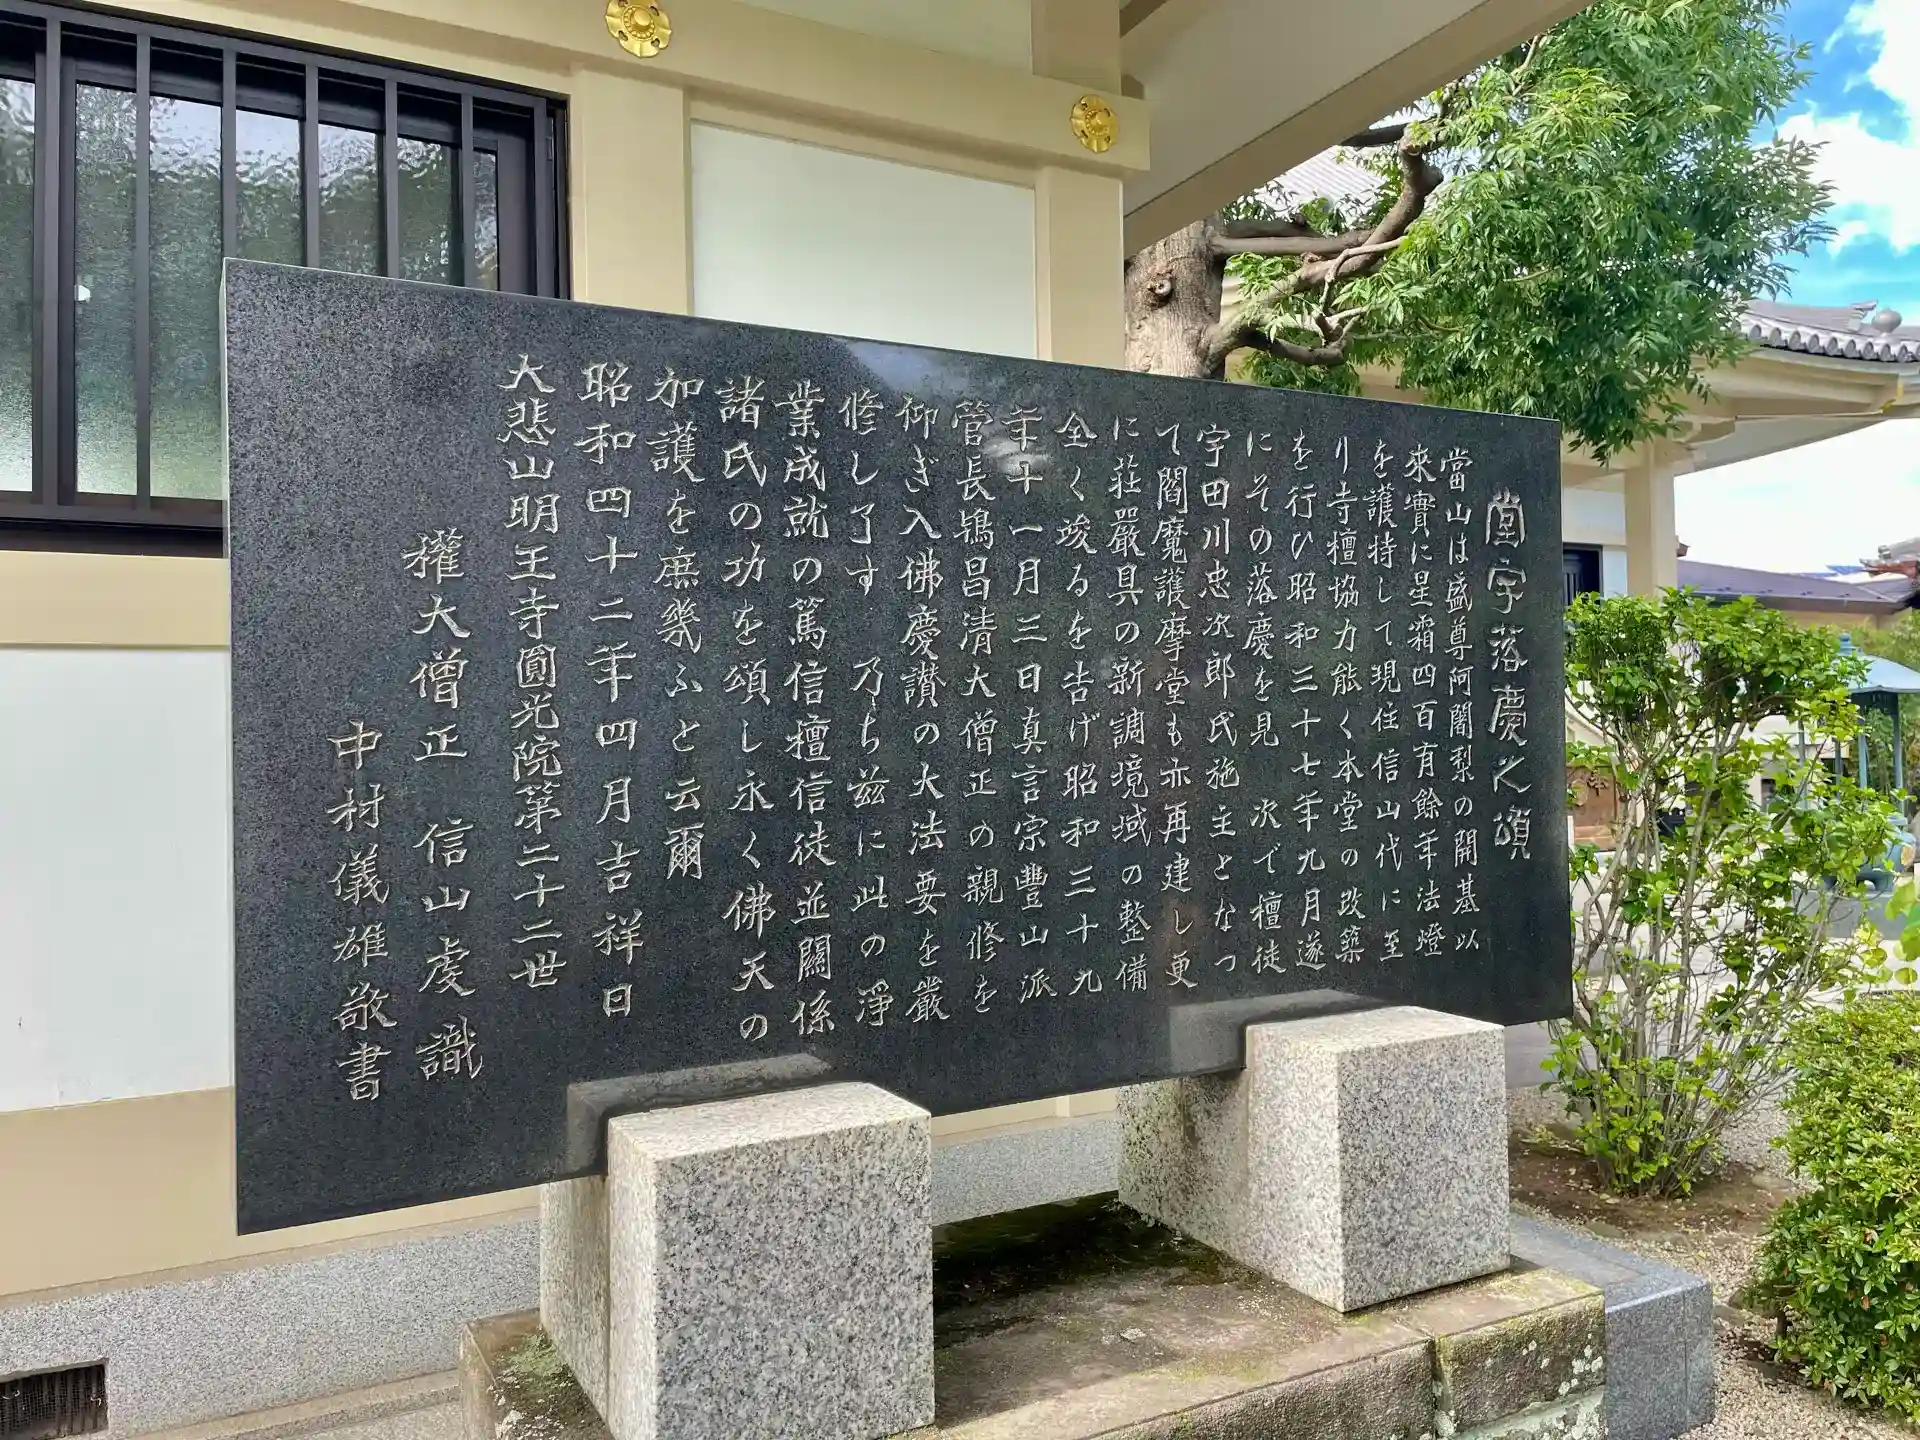 堂宇落慶之頌
當山は盛尊阿闍梨の開基以
來實に星霜四百有餘年法燈
を護持して現住信山代に至
り寺檀協力能く本堂の改築
を行ひ昭和三十七年九月遂
にその落慶を見 次で檀徒
宇田川忠次郎氏施主となつ
て閻魔護摩堂も亦再建し更
に莊嚴具の新調境域の整備
全く竣るを告げ昭和三十九
年十一月三日真言宗豐山派
管長鴇昌清大僧正の親修を
仰ぎ入佛慶讃の大法要を嚴
修し了す 乃ち茲に此の淨
業成就の篤信檀信徒並關係
諸氏の功を頌し永く佛天の
加護を庶幾ふと云爾
昭和四十二年四月吉祥日
大悲山明王寺圓光院第二十二世
權大僧正 信山虔識
中村儀雄敬書